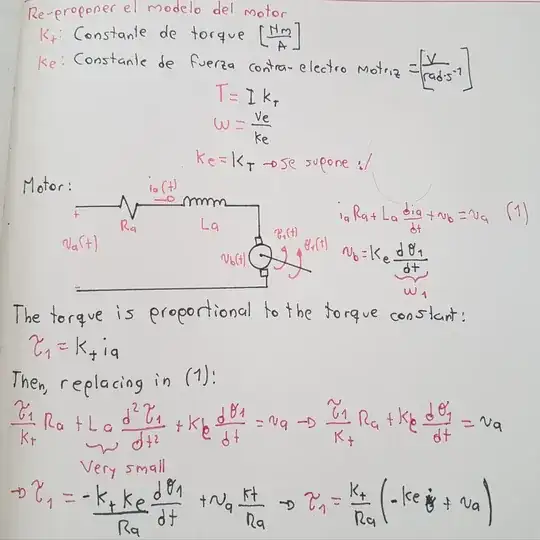 Re-proponer el modelo del motor
Kₜ: Constante de torque [Nm/A]
Ke: Constante de fuerza contra-electro Motriz = [V/rad·s⁻¹]
T = I kₜ
ω = Ve/ke
ke = kT → se supone :/
Motor:
iₐ(t)
Rₐ
Lₐ
vₐ(t)
v_b(t)
τ₁(t)
θ₁(t)
iₐRₐ + Lₐ diₐ/dt + v_b = vₐ (1)
v_b = Ke dθ₁/dt
ω₁
The torque is proportional to the torque constant:
τ₁ = kₜ iₐ
Then, replacing in (1):
τ₁/kₜ Rₐ + Lₐ d²τ₁/dt² + Ke dθ₁/dt = vₐ → τ₁/Kₜ Rₐ + Ke dθ₁/dt = vₐ
Very small
→ τ₁ = -kₜ ke/Rₐ dθ₁/dt + vₐ kt/Rₐ → τ₁ = kₜ/Rₐ (-ke θ̇ + vₐ)